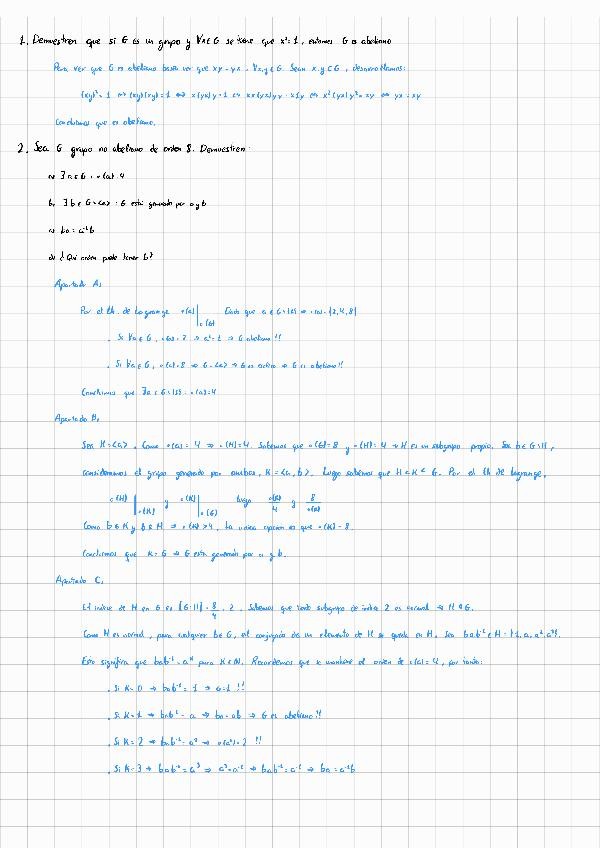 1. Demuestren que si G es un grupo y ∀x∈G se tiene que x²=1, entonces G es abeliano
Para ver que G es abeliano basta ver que xy=yx, ∀x,y∈G. Sean x,y∈G, desarrollamos:
(xy)²=1 ⇔ (xy)(xy)=1 ⇔ x(yx)y=1 ⇔ xx(yx)yy=x1y ⇔ x²(yx)y²=xy ⇔ yx=xy
Concluimos que es abeliano.
2. Sea G grupo no abeliano de orden 8. Demuestren:
a) ∃a∈G : o(a)=4
b) ∃b∈G\<a> : G está generado por a y b
c) ba=a⁻¹b
d) ¿Qué orden puede tener b?
Apartado A)
Por el th. de Lagrange o(a) | o(G) Cada que a∈G\{1} ⇒ o(a)={2,4,8}
· Si ∀a∈G, o(a)=2 ⇒ a²=1 ⇒ G abeliano!!
· Si ∀a∈G, o(a)=8 ⇒ G=<a> ⇒ G es cíclico ⇒ G es abeliano!!
Concluimos que ∃a∈G\{1} : o(a)=4
Apartado B)
Sea H=<a>. Como o(a)=4 ⇒ o(H)=4. Sabemos que o(G)=8 y o(H)=4 ⇒ H es un subgrupo propio. Sea b∈G\H,
consideramos el grupo generado por ambos, K=<a,b>. Luego sabemos que H<K≤G. Por el th de Lagrange,
o(H) | o(K) y o(K) | o(G) luego o(K)/4 y 8/o(K)
Como b∈K y b∉H ⇒ o(K)>4. La única opción es que o(K)=8.
Concluimos que K=G ⇒ G está generado por a y b.
Apartado C)
El índice de H en G es [G:H]=8/4=2. Sabemos que todo subgrupo de índice 2 es normal ⇒ H⊲G.
Como H es normal, para cualquier b∈G, el conjugado de un elemento de H se queda en H. Sea bab⁻¹∈H={1,a,a²,a³}.
Esto significa que bab⁻¹=aᴷ para K∈N. Recordemos que se mantiene el orden de o(a)=4, por tanto:
· Si K=0 ⇒ bab⁻¹=1 ⇒ a=1 !!
· Si K=1 ⇒ bab⁻¹=a ⇒ ba=ab ⇒ G es abeliano!!
· Si K=2 ⇒ bab⁻¹=a² ⇒ o(a²)=2 !!
· Si K=3 ⇒ bab⁻¹=a³ ⇒ a³=a⁻¹ ⇒ bab⁻¹=a⁻¹ ⇒ ba=a⁻¹b